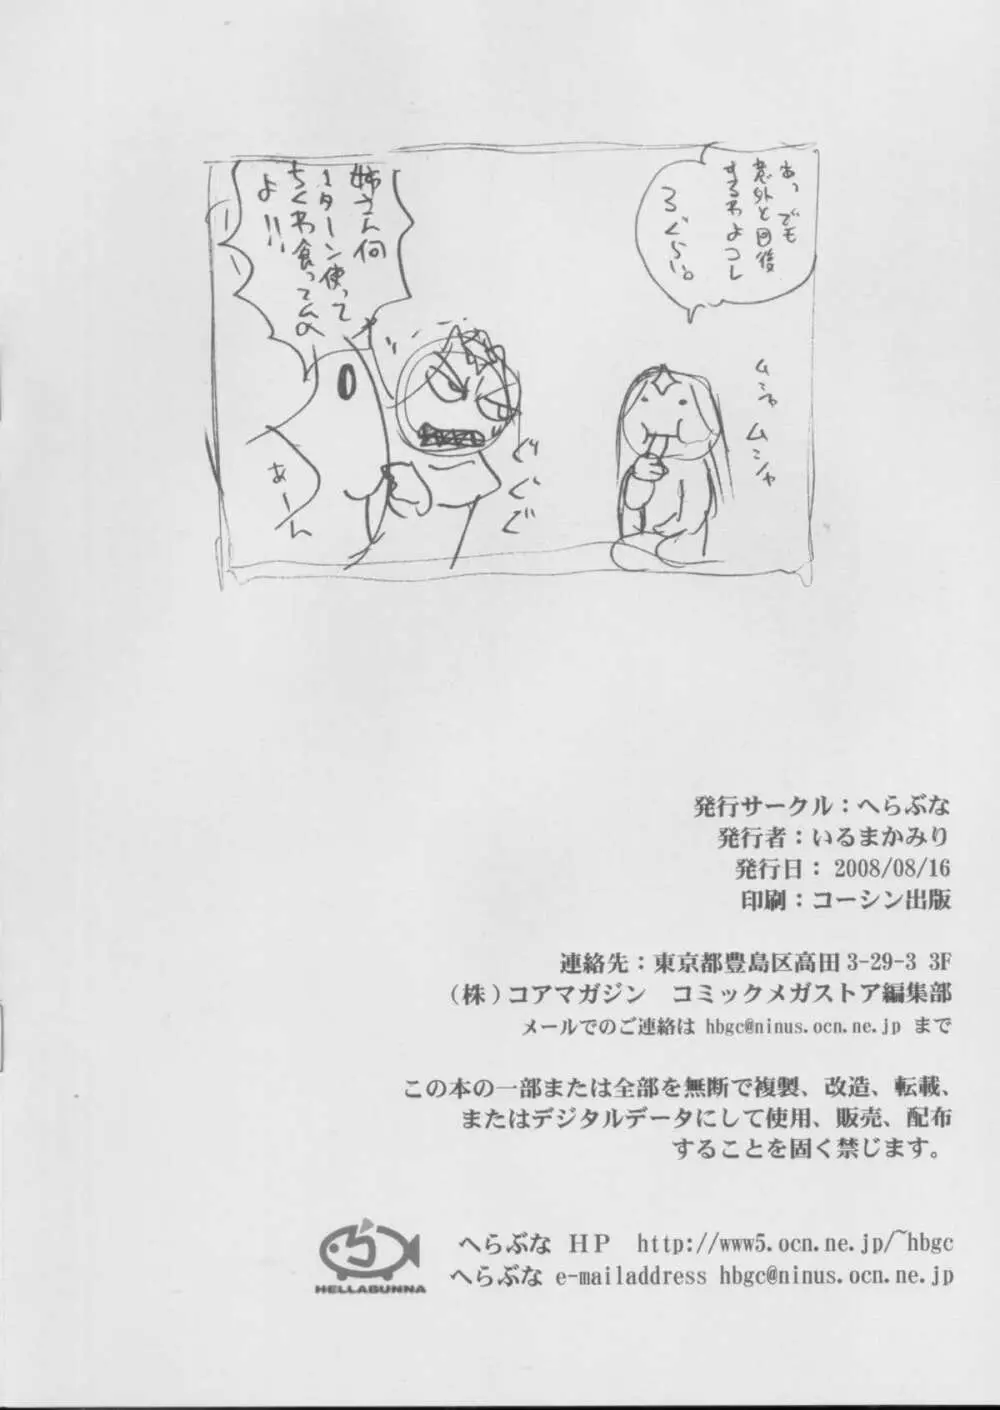 あっでも
意外と回復
するわよコレ
3ぐらい。
ムシャ
ムシャ
姉さん何
1ターン使って
ちくわ食ってんの
よ!!
あーん
ぐぐぐ
発行サークル：へらぶな
発行者：いるまかみり
発行日： 2008/08/16
印刷：コーシン出版
連絡先：東京都豊島区高田 3-29-3 3F
（株）コアマガジン　コミックメガストア編集部
メールでのご連絡は hbgc@ninus.ocn.ne.jp まで
この本の一部または全部を無断で複製、改造、転載、
またはデジタルデータにして使用、販売、配布
することを固く禁じます。
へらぶな HP http://www5.ocn.ne.jp/~hbgc
へらぶな e-mailaddress hbgc@ninus.ocn.ne.jp
HELLABUNNA